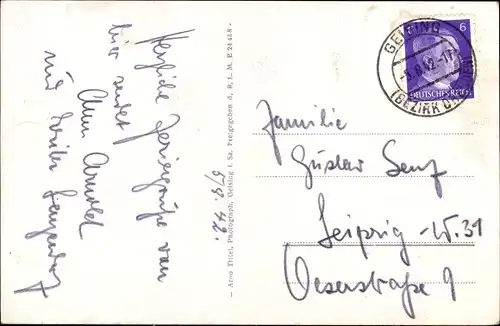 Herzliche Feriengrüße von
hier sendet
Ann Arnold
und
5/8.42.
– Arno Thiel, Photograph, Geising i. Sa. Freigegeben d. R. L. M. E 21418 –
GEISING
-9.8.42.-17
(BEZIRK
6
DEUTSCHES REICH
Familie
Gustav Senf
Leipzig-W.31
Oeserstraße 9